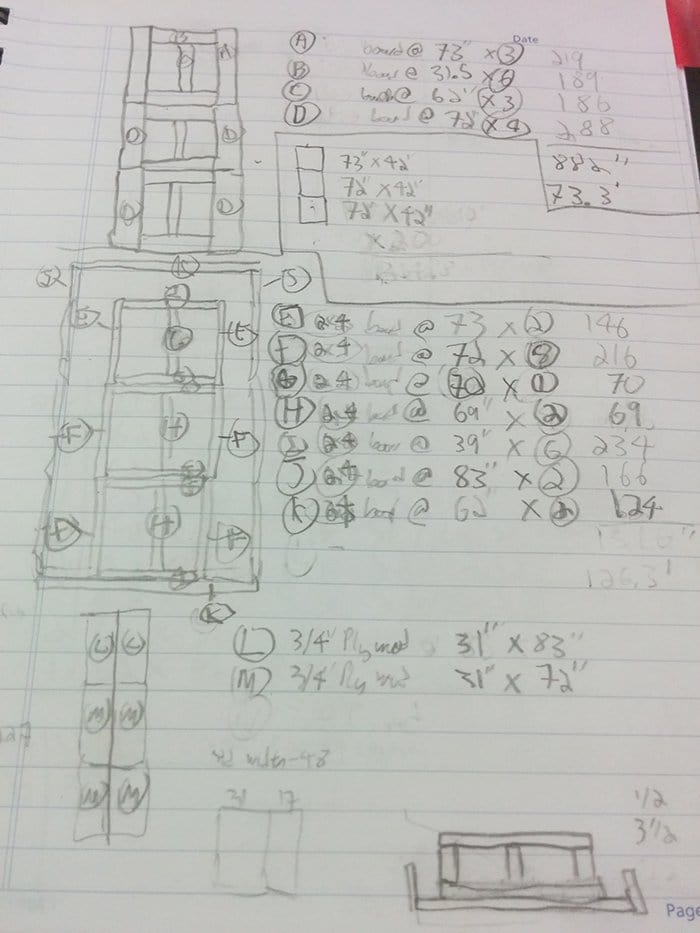 Date
A board @ 73" x 3 219
B board @ 31.5 x 6 189
C board @ 62" x 3 186
D board @ 72" x 4 288
882"
73.3'
73" x 42"
72" x 42"
72" x 42"
x 20
E 2x4 board @ 73 x 2 146
F 2x4 board @ 72 x 8 216
G 2x4 board @ 70 x 1 70
H 2x4 board @ 69" x 2 69
2x4 board @ 39" x 6 234
J 2x4 board @ 83" x 2 166
K 2x4 board @ 62 x 2 124
126.3'
L 3/4" Plywood 31" x 83"
M 3/4" Plywood 31" x 72"
31 17
1/2
3 1/2
Page
B
A
D
D
D
D
K
J
J
E
E
G
H
F
F
H
F
F
K
L L
M M
M M